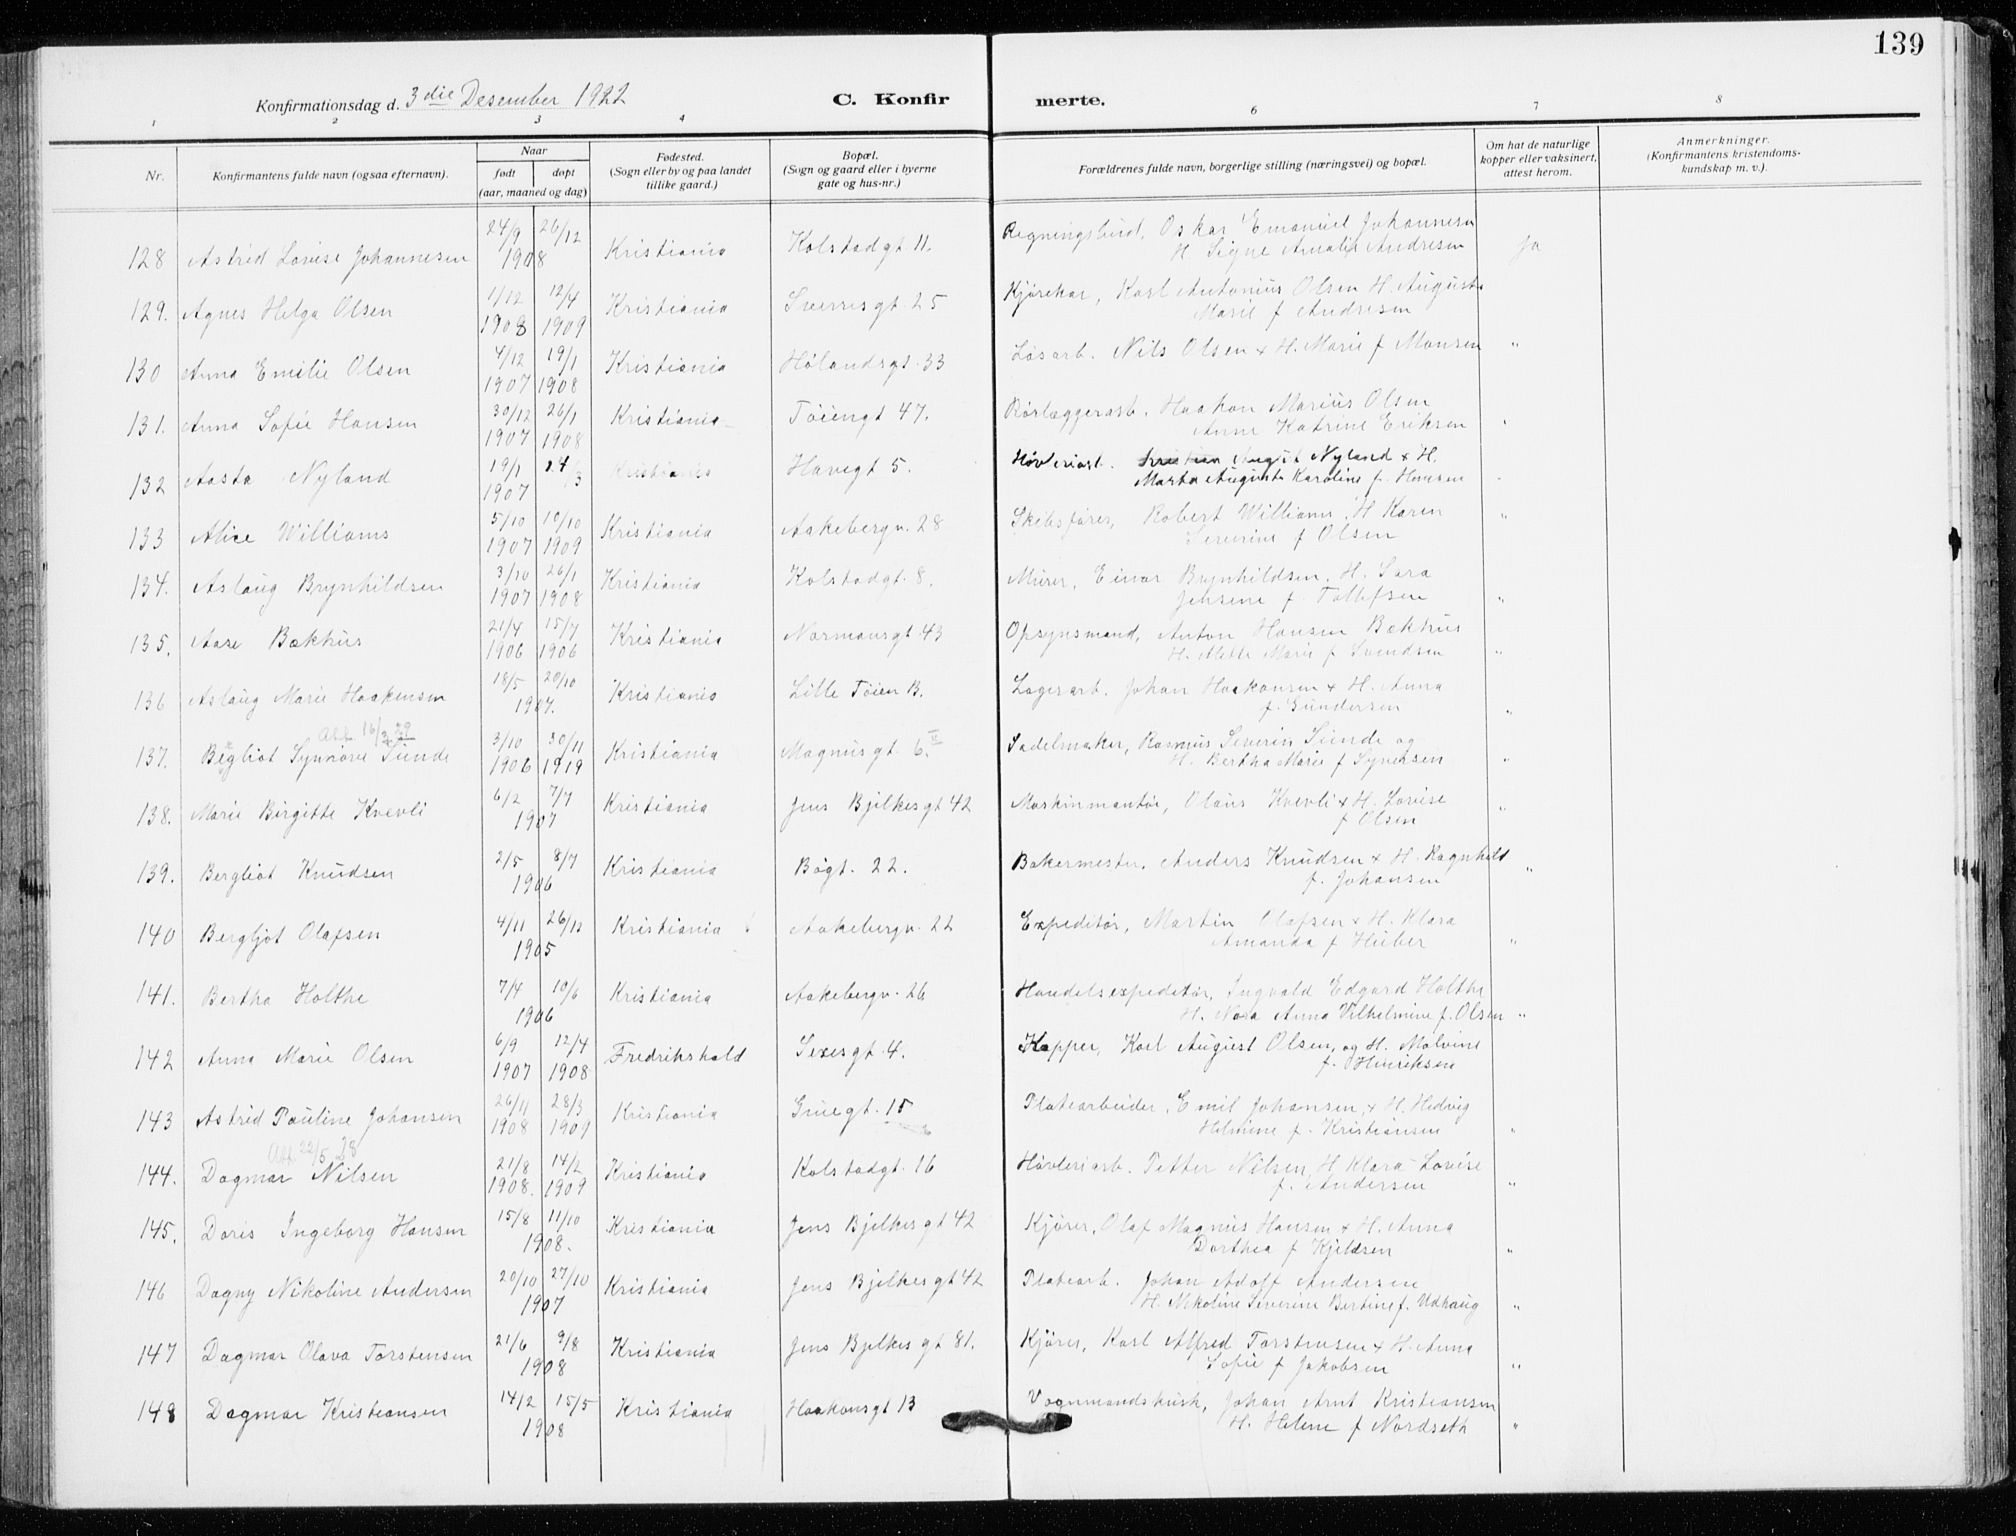 139
Konfirmationsdag d. 3die Desember 1922 C. Konfirmerte.
1 2 3 4 6 7 8
Nr. Konfirmantens fulde navn (ogsaa efternavn). Naar født døpt (aar, maaned og dag) Fødested. (Sogn eller by og paa landet tillike gaard.) Bopæl. (Sogn og gaard eller i byerne gate og hus-nr.) Forældrenes fulde navn, borgerlige stilling (næringsvei) og bopæl. Om hat de naturlige kopper eller vaksinert, attest herom. Anmerkninger. (Konfirmantens kristendomskundskap m. v.).
128 Astrid Lovise Johannesen 24/9 26/12 1908 Kristiania Kolstadgt. 11. Regningsbud, Oskar Emanuel Johannesen
H. Signe Amalie Andresen Ja
129. Agnes Helga Olsen 1/12 1908 12/4 1909 Kristiania Sverresgt. 25 Kjørekar, Karl Antonius Olsen H. Augusta
Marie f Andresen
130 Anna Emilie Olsen 4/12 1907 19/1 1908 Kristiania Hølandsgt. 33 Løsarb. Nils Olsen & H. Marie f Monsen "
131. Anna Sofie Hansen 30/12 1907 26/1 1908 Kristiania Tøiengt 47. Rørlæggerarb. Haakon Marius Olsen
Anne Katrine Eriksen "
132 Aasta Nyland 19/1 1907 24/3 Kristiania Havegt 5. Høvleriarb. August Nyland & H.
Marta Augusta Karoline f. Hansen
133 Alice Williams 5/10 1907 10/10 1909 Kristiania Aakebergv. 28 Skibsfører, Robert Williams, H Karen
Severine f Olsen "
134. Aslaug Brynhildsen 3/10 1907 26/1 1908 Kristiania Kolstadgt. 8. Murer, Einar Brynhildsen. H. Sara
Jensene f. Tollefsen "
135. Aase Bakhus 21/4 1906 15/7 1906 Kristiania Normansgt. 43 Opsynsmand, Anton Hansen Bakhus
H. Alette Marie f Svendsen "
136 Aslaug Marie Haakensen 18/5 20/10 1907. Kristiania Lille Tøien B. Lagerarb. Johan Haakonsen & H. Anna
f. Gundersen "
Att. 16/3 29
137. Bergliot Synnøve Sunde 3/10 1906 30/11 1919 Kristiania Magnusgt. 6. II Sadelmaker, Rasmus Severin Sunde og
H. Bertha Marie f Syversen "
138. Marie Birgitte Kvevli 6/2 7/7 1907 Kristiania Jens Bjelkesgt 42 Maskinmontør, Olaus Kvevli & H. Lovise
f Olsen "
139. Bergliot Knudsen 2/5 8/7 1906 Kristiania Bøgt. 22. Bakermester, Anders Knudsen & H. Ragnhild
f. Johansen "
140 Bergljot Olafsen 4/11 26/12 1905 Kristiania Aakebergv. 22 Expeditør, Martin Olafsen & H. Klara
Amanda f Huber "
141. Bertha Holthe 7/4 10/6 1906 Kristiania Aakebergv. 26 Handelsexpeditør, Ingvald Edgard Holthe
H. Nora Anna Vilhelmine f. Olsen "
142 Anna Marie Olsen 6/9 1907 12/4 1908 Fredrikshald Sexesgt. 4. Kopper, Karl August Olsen, og H. Molvine
f. Hinriksen
143 Astrid Pauline Johansen 26/11 1908 28/3 1909 Kristiania Gruegt. 15 Platearbeider, Emil Johansen, & H. Hedvig
Helmine f. Kristiansen "
Att 22/5 28
144. Dagmar Nilsen 21/8 1908. 14/2 1909 Kristiania Kolstadgt. 16 Høvleriarb. Petter Nilsen, H. Klara Lovise
f. Andersen "
145. Doris Ingeborg Hansen 15/8 11/10 1908. Kristiania Jens Bjelkesgt 42 Kjører, Olaf Magnus Hansen & H. Anna
Dorthea f Kjeldsen "
146 Dagny Nikoline Andersen 20/10 27/10 1907 Kristiania Jens Bjelkesgt 42 Platearb. Johan Adolf Andersen
H. Nikoline Severine Bertine f. Udhaug "
147 Dagmar Olava Torstensen 21/6 9/8 1908 Kristiania Jens Bjelkes gt 81. Kjører, Karl Alfred Torstensen & H. Anna
Sofie f Jakobsen "
148 Dagmar Kristiansen 14/2 15/5 1908 Kristiania Haakonsgt 13 Vognmandskusk, Johan Arnt Kristiansen
H. Helene f Nordseth "